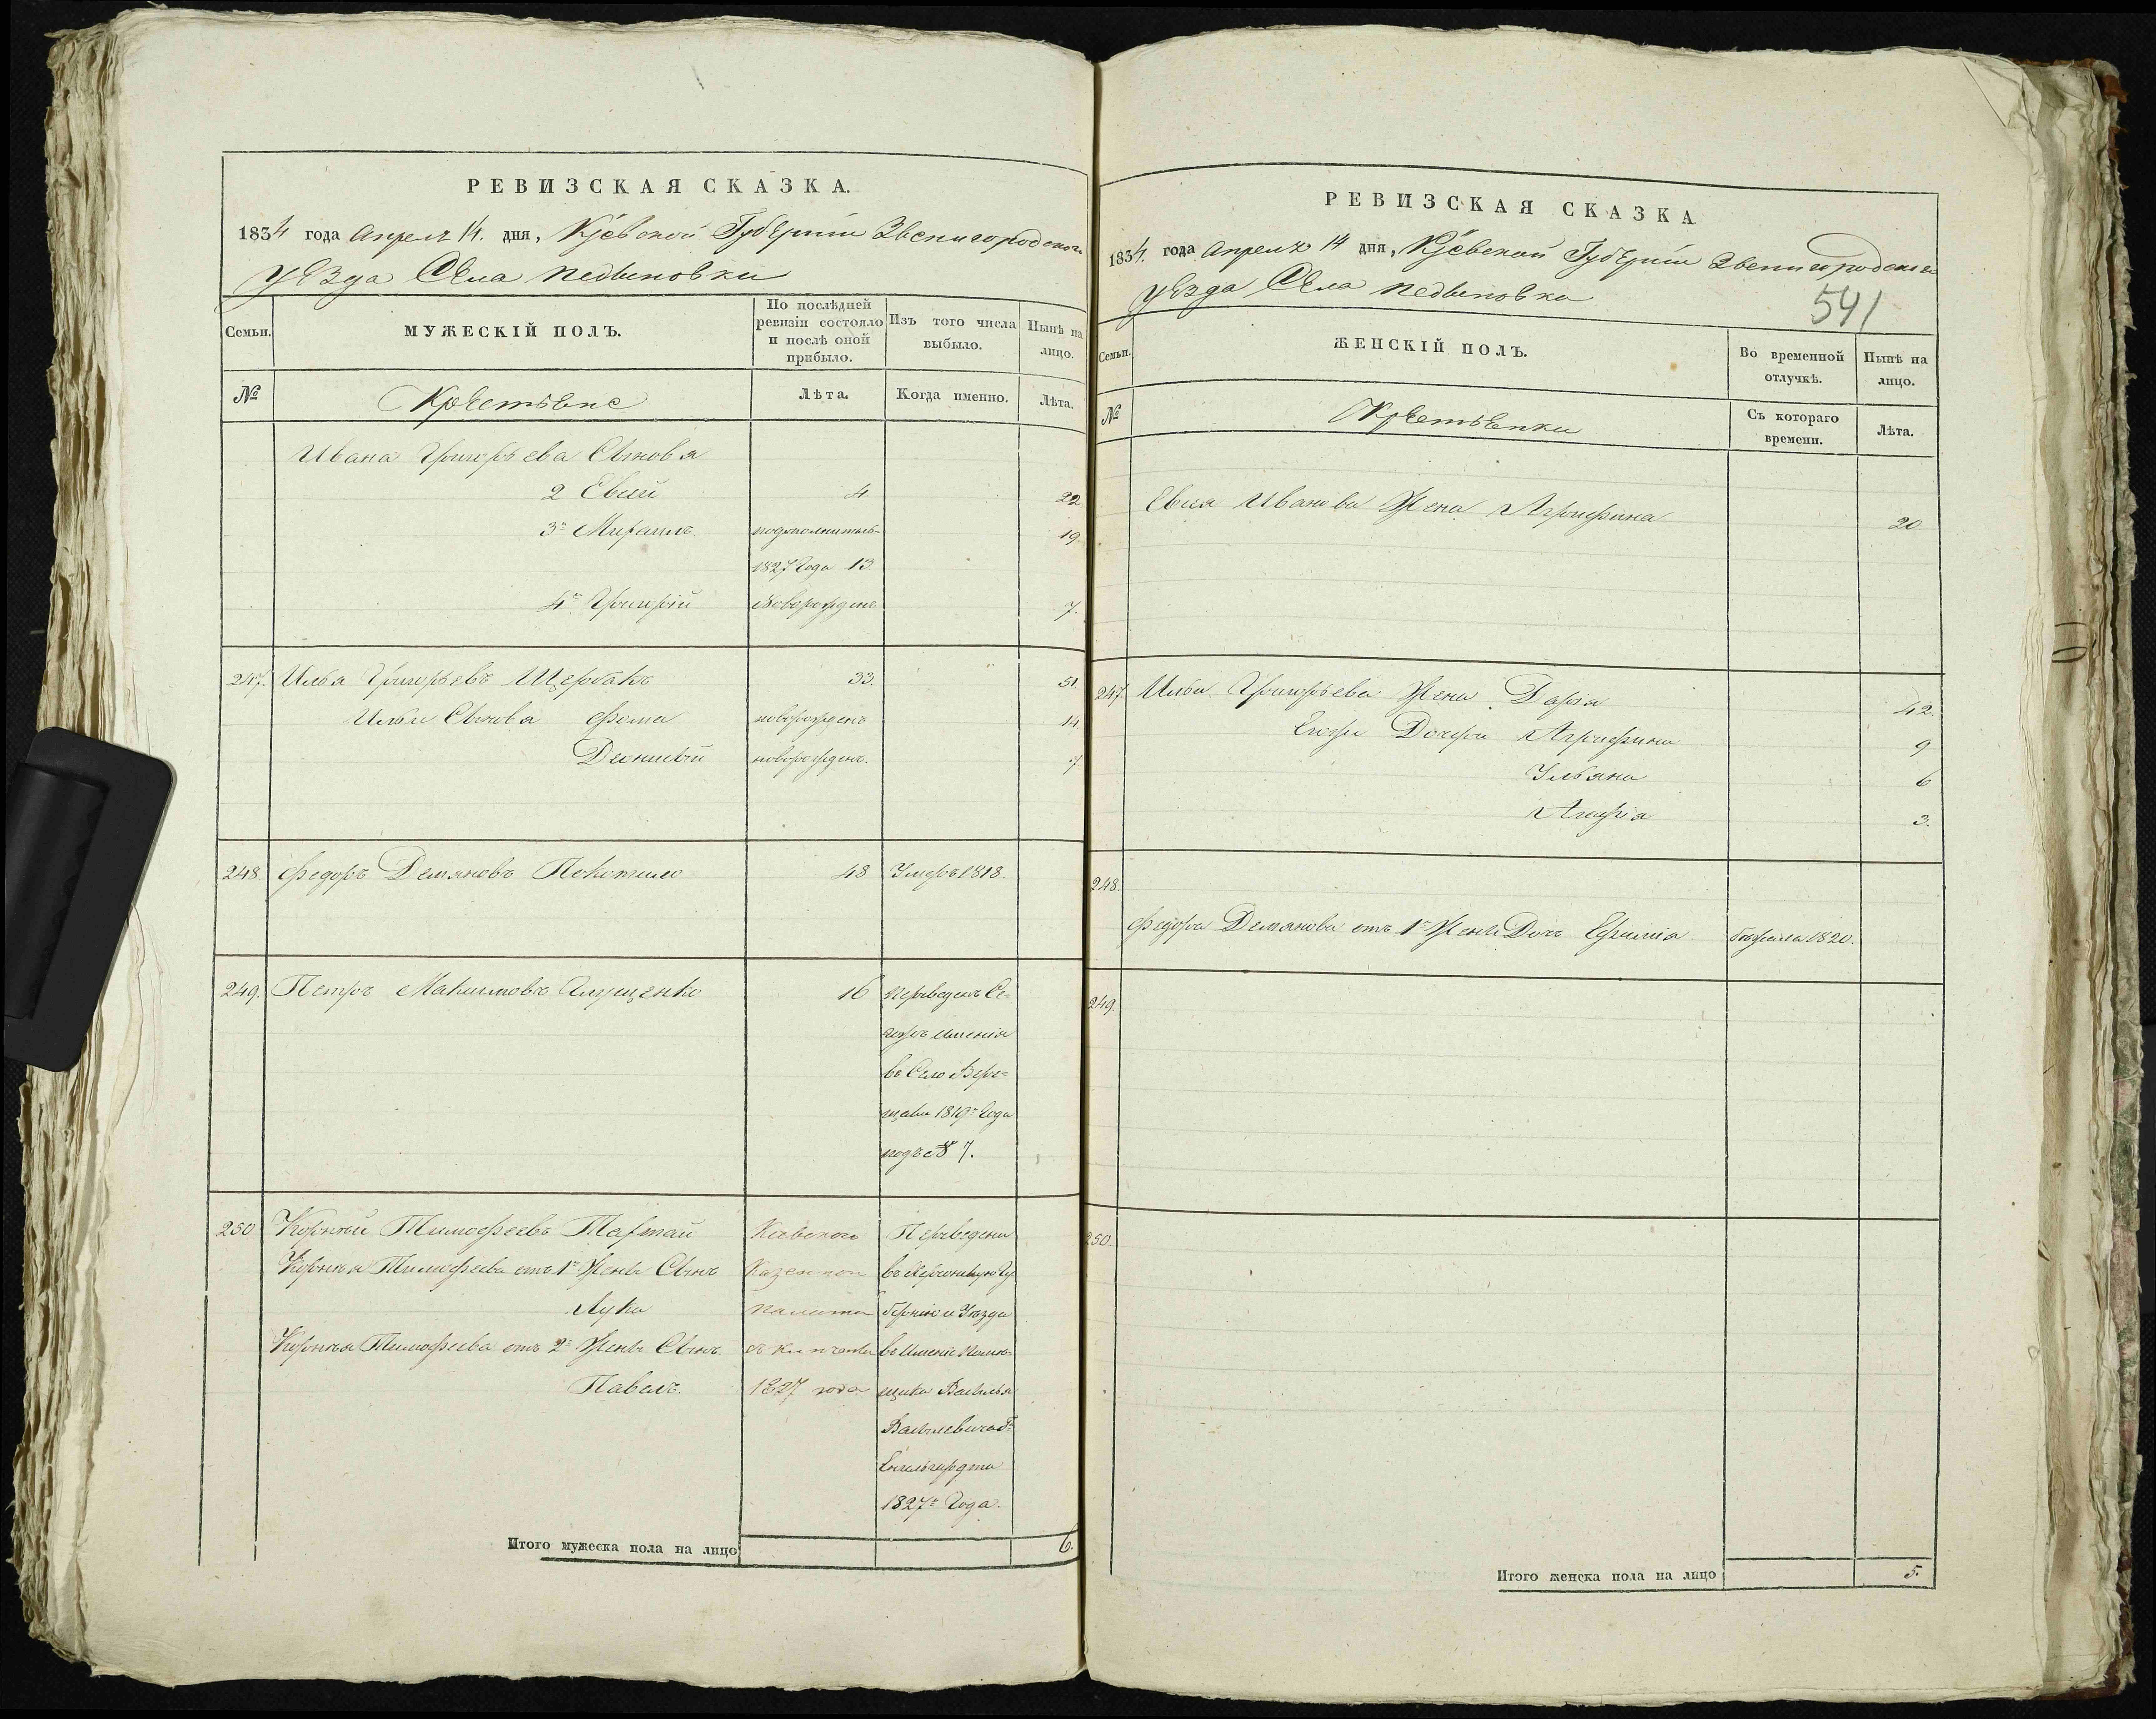 РЕВИЗСКАЯ СКАЗКА.
1834 года Апреля 14. дня, Кіевской Губерніи Звенигородского
уезда Села Педыновки
Семьи.
МУЖЕСКІЙ ПОЛЪ.
По послѣдней ревизіи состояло и послѣ оной прибыло.
Изъ того числа выбыло.
Нынѣ на лицо.
№
Крестьяне
Лѣта.
Когда именно.
Лѣта.
Ивана Григорьева Сыновья
2 Евсей 4 22
3й Михаилъ подополнитель- 19.
1827 Года 13
4й Григорій новорожденъ 7.
247. Илья Григорьевъ Щербакъ 33. 51.
Ильи Сынова Фома новорожденъ 14
новорожденъ. 7
248. Федоръ Демяновъ Покотило 48 Умеръ 1818.
249. Петръ Максимовъ 16 переведенъ Се-
гожъ имения
въ Село Вере-
щаки 1819го Года
подъ № 7.
250 Корнѣй Тимофеевъ Тартай Киевского Переведены
Корнѣя Тимофеева отъ 1й Жены Сынъ Казенной въ Херсонскую Гу
Лука палаты бернию и Уезда
Корнѣя Тимофеева отъ 2й Жены Сынъ въ Имение Поме-
Павелъ. 1827 года щика Василья
Васильевича
Енгельгардта
1827го Года.
Итого мужеска пола на лицо 6.
РЕВИЗСКАЯ СКАЗКА
541
1834. года Апреля 14 дня, Кіевской Губерніи Звенигородского
уезда Села Педыновки
Семьи.
ЖЕНСКІЙ ПОЛЪ.
Во временной отлучкѣ.
Нынѣ на лицо.
№
Крестьянки
Съ котораго времени.
Лѣта.
Евсея Иванова Жена Агрифина 20
247. Ильи Григорьева Жена Дарія 42.
Егожъ Дочери Агрифина 9
Ульяна 6
Агафія 3.
248.
Федора Демянова отъ 1й Жены Дочь Ефимія бежала 1820.
249.
250.
Итого женска пола на лицо 5.